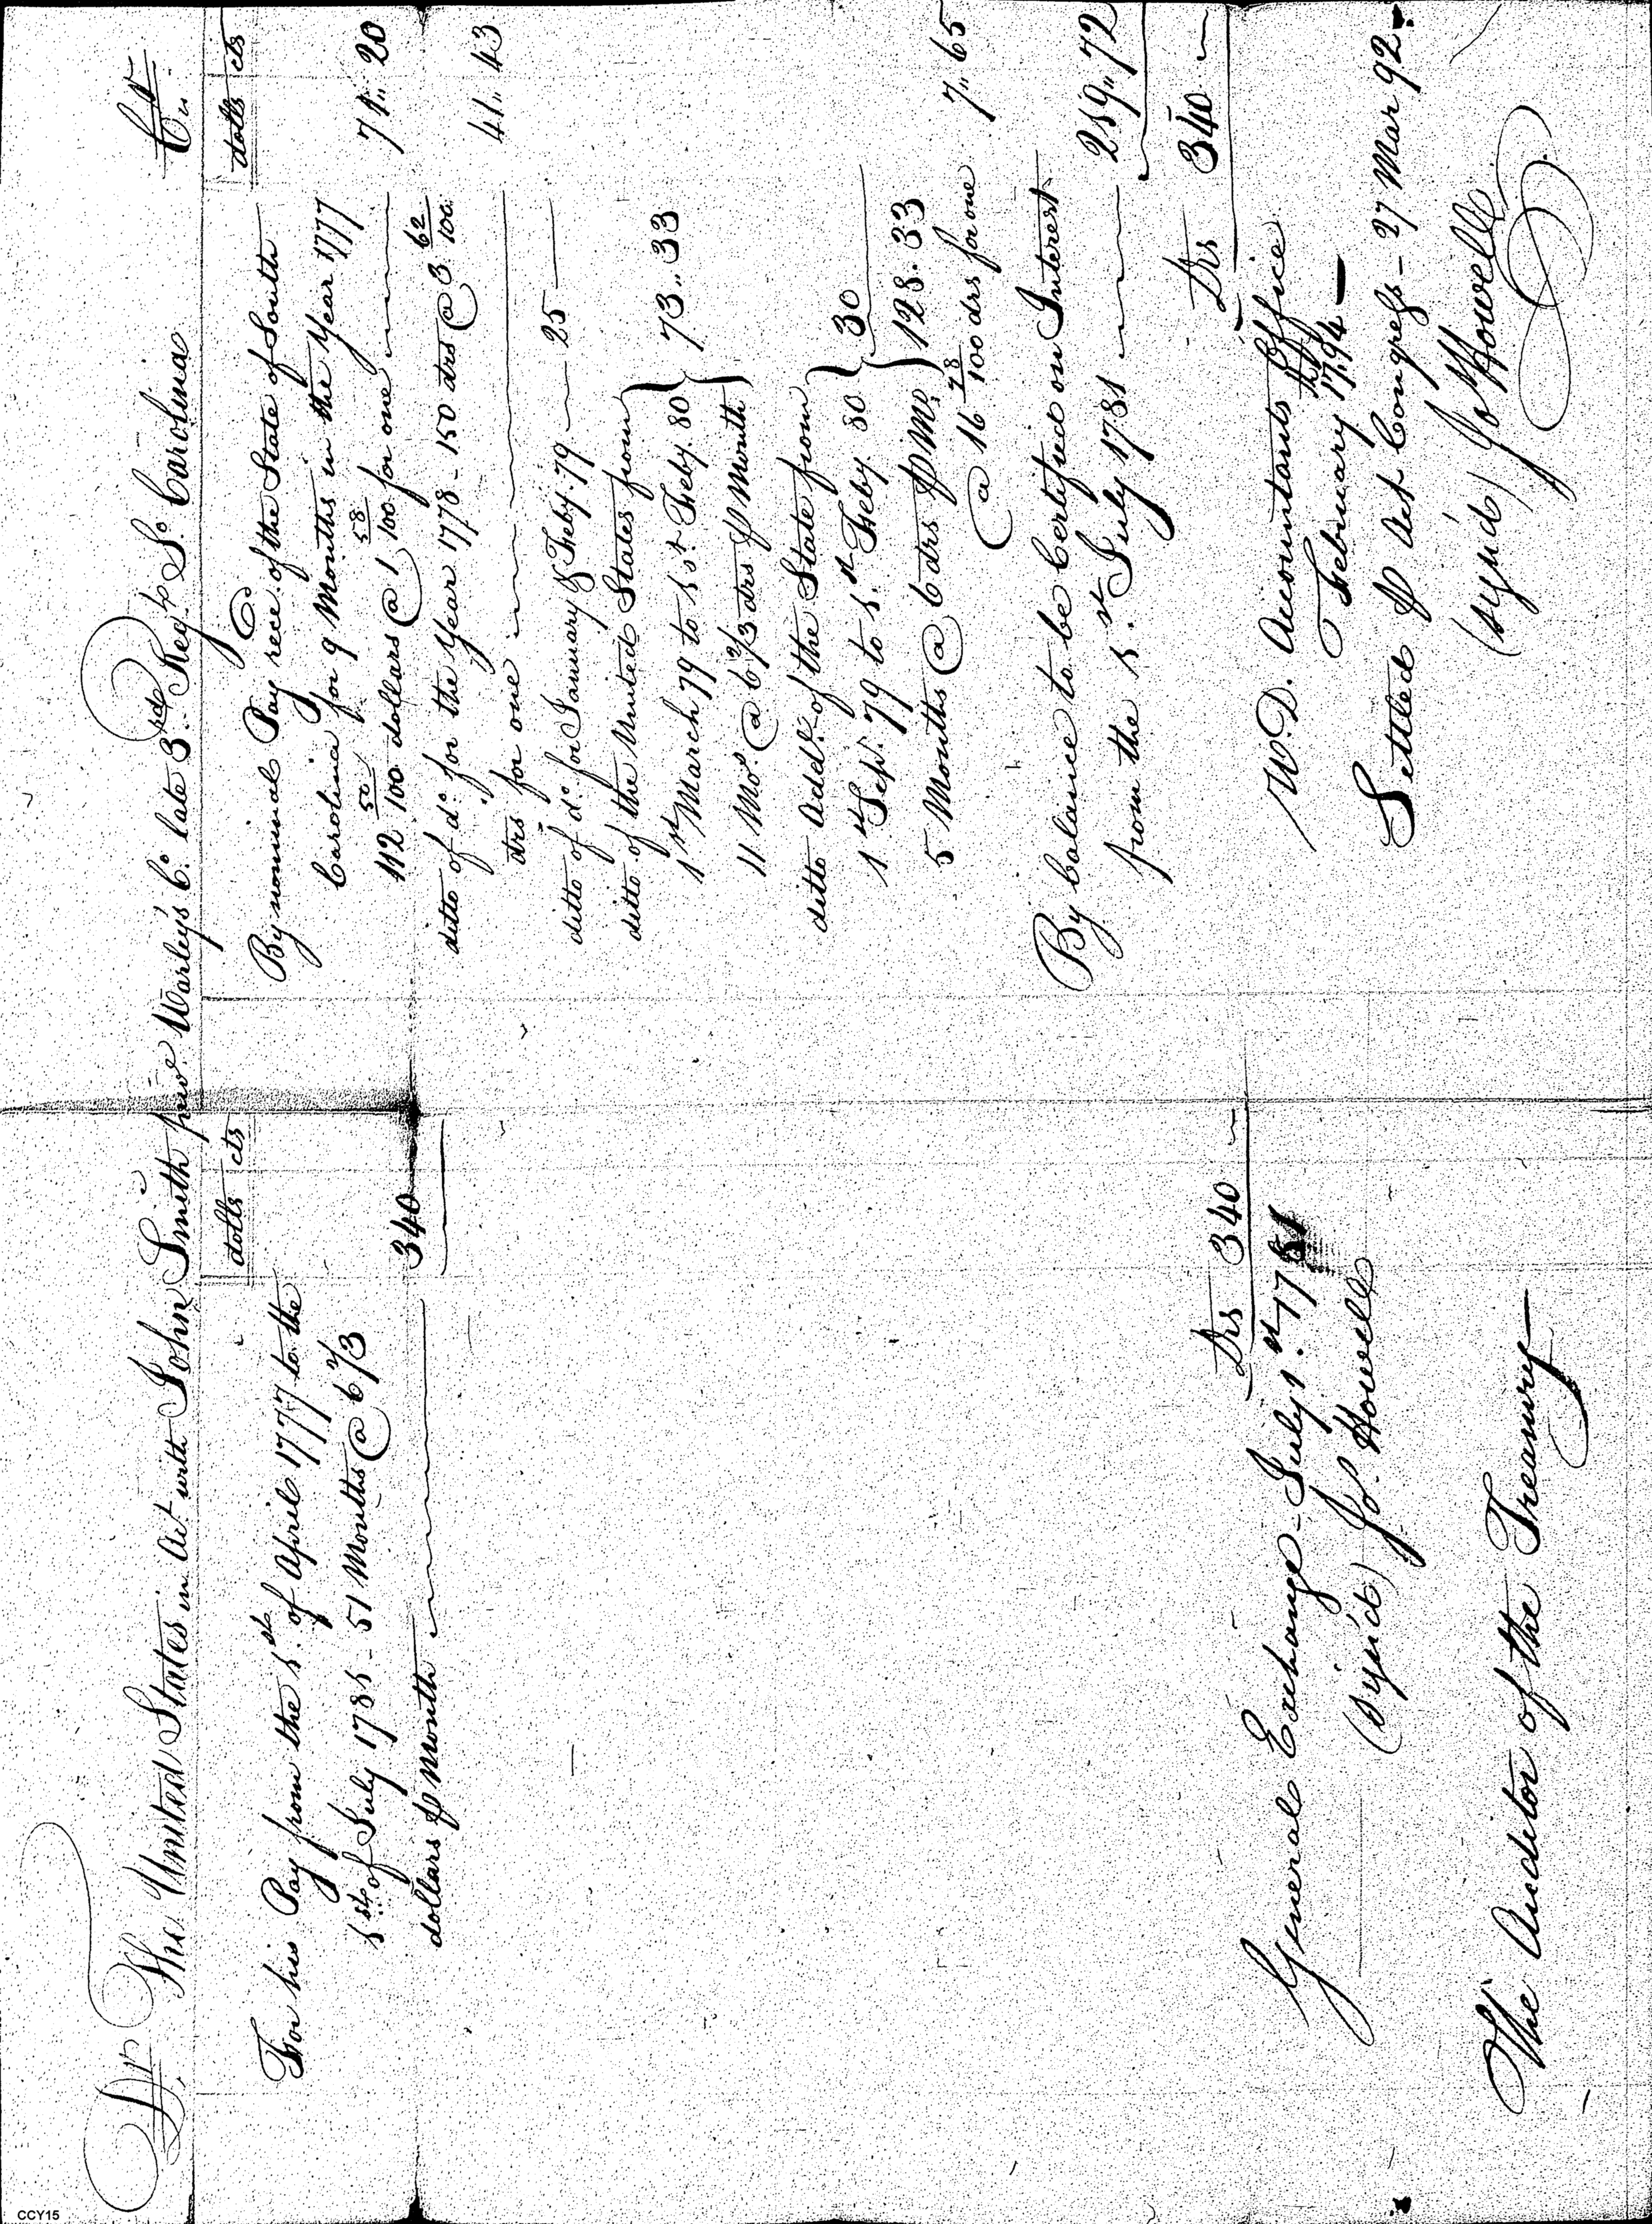 Dr The United States in Act with John Smith priv Warley's Co late 3rd Regt So Carolina Cr
dolls cts
For his Pay from the 1st of April 1777 to the
1st of July 1781 - 51 Months @ 6 2/3
dollars ⅌ Month 340
Drs 340
General Exchange - July 1st 1781
(sign'd) Jos Howell
The Auditor of the Treasury
dolls cts
By nominal Pay rece. of the State of South
Carolina for 9 Months in the Year 1777
112 50/100 dollars @ 1 58/100 for one 71,, 20
ditto of do for the Year 1778 - 150 drs @ 3 62/100
drs for one 41,, 43
ditto of do for January & Feby. 79 25
ditto of the United States from
1st March 79 to 1st Feby. 80 } 73,, 33
11 Mos @ 6 2/3 drs ⅌ Month
ditto Addl. of the State from
1st Sept. 79 to 1st Feby. 80 } 30
5 Months @ 6 drs ⅌ Mo. } 128. 33
@ 16 78/100 drs for one 7,, 65
By balance to be Certified on Interest
from the 1st July 1781 219,, 72
Drs 340
W.D. Accountants Office
February 1794
Settled ⅌ Act Congress - 27 Mar 92.
(sign'd) Jo Howell
CCY15